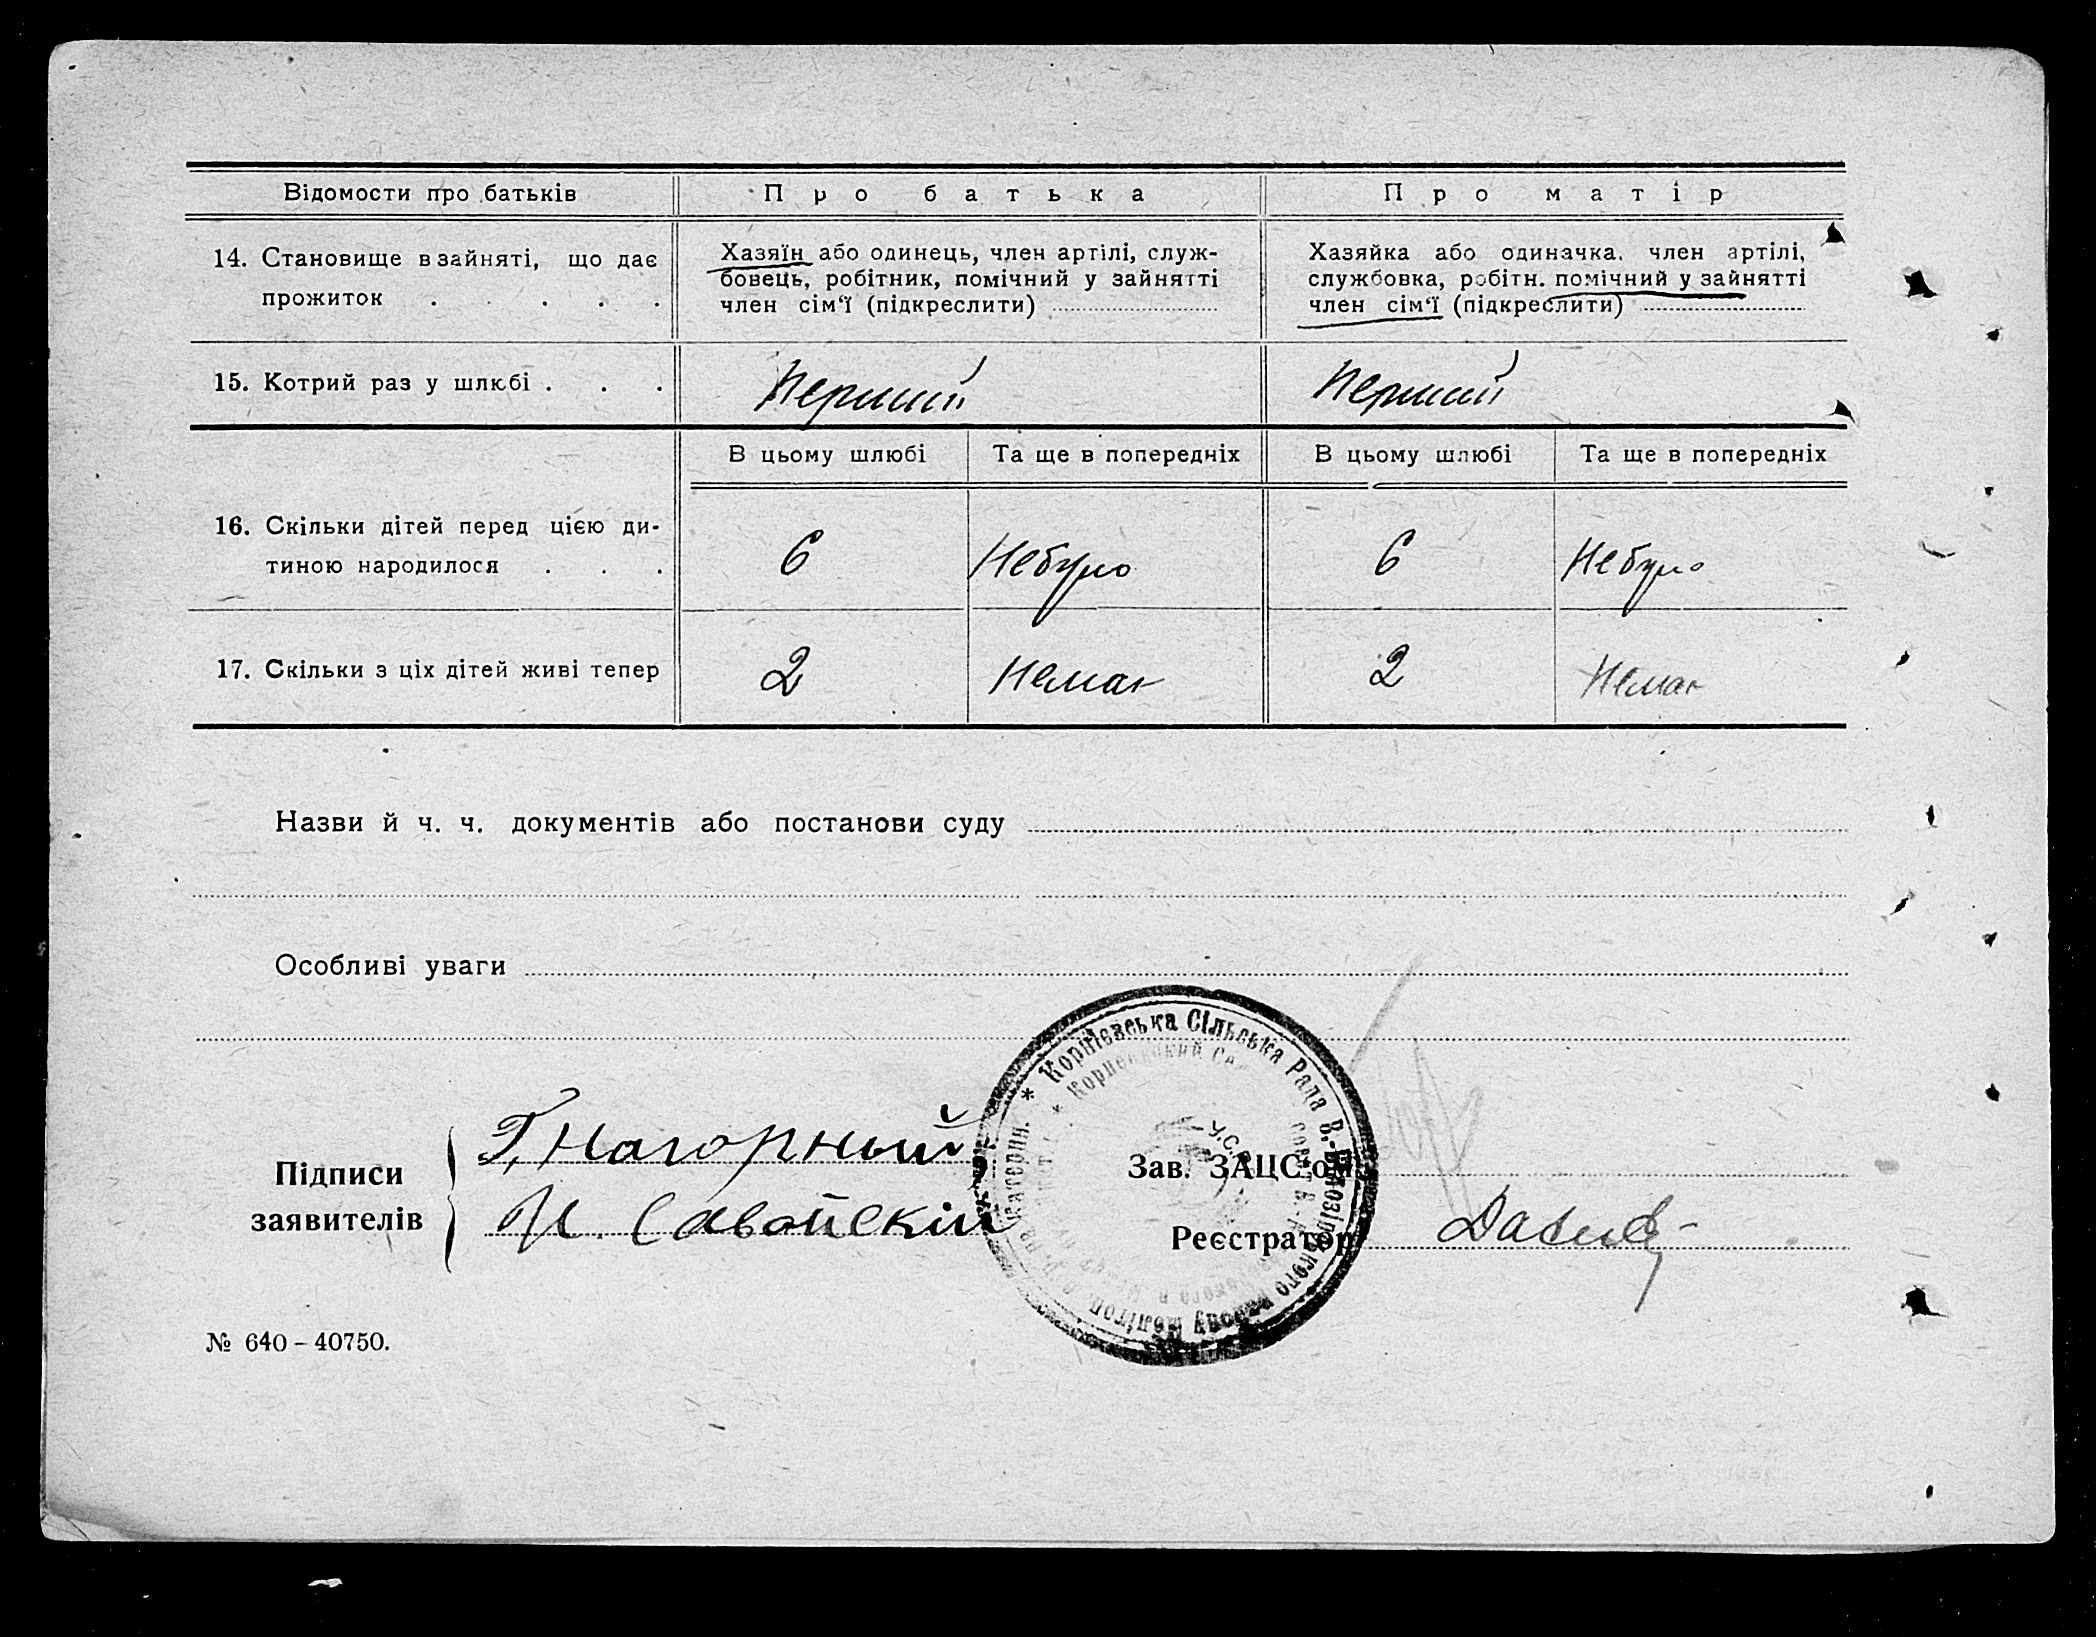 Відомости про батьків
Про батька
Про матір
14. Становище в зайняті, що дає
прожиток . . . . .
Хазяїн або одинець, член артілі, служ-
бовець, робітник, помічний у зайнятті
член сім'ї (підкреслити)
Хазяйка або одиначка, член артілі,
службовка, робітн. помічний у зайнятті
член сім'ї (підкреслити)
15. Котрий раз у шлюбі . . .
Перший
Перший
В цьому шлюбі
Та ще в попередніх
В цьому шлюбі
Та ще в попередніх
16. Скільки дітей перед цією ди-
тиною народилося . . .
6
Небуло
6
Небуло
17. Скільки з ціх дітей живі тепер
2
Немає
2
Немає
Назви й ч. ч. документів або постанови суду
Особливі уваги
* Корнієвська Сільська Рада В.-Білозірського Району Мелітоп.
Підписи
заявителів
Г. Нагорный
И. Савойскій
Зав. ЗАЦС'ом
Реєстратор
№ 640 – 40750.